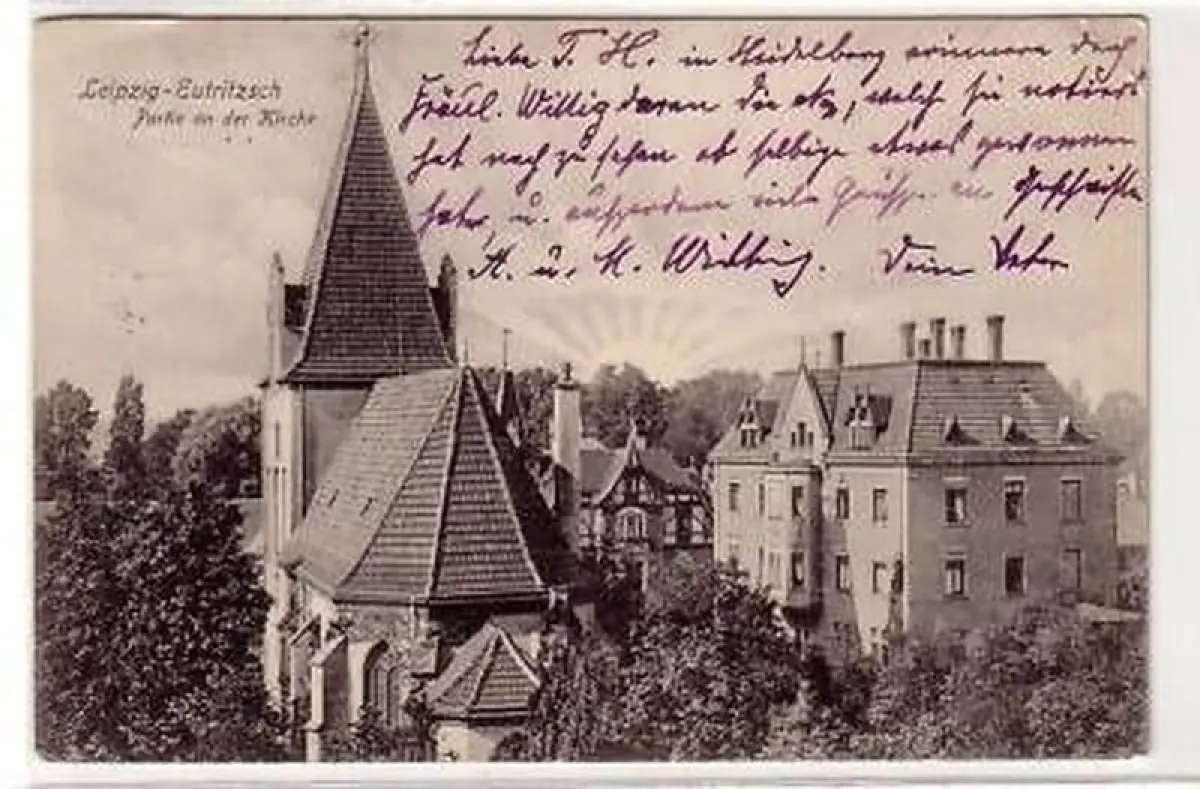 Leipzig-Eutritzsch
Partie an der Kirche
Liebe T. H. in Heidelberg erinnere doch
Fräul. Wittig daran die welch sie notiert
hat nach zu sehen ob selbige etwas gewonnen
habe, u. außerdem viele Grüße an Geschwister
A. u. M. Wittig. Dein